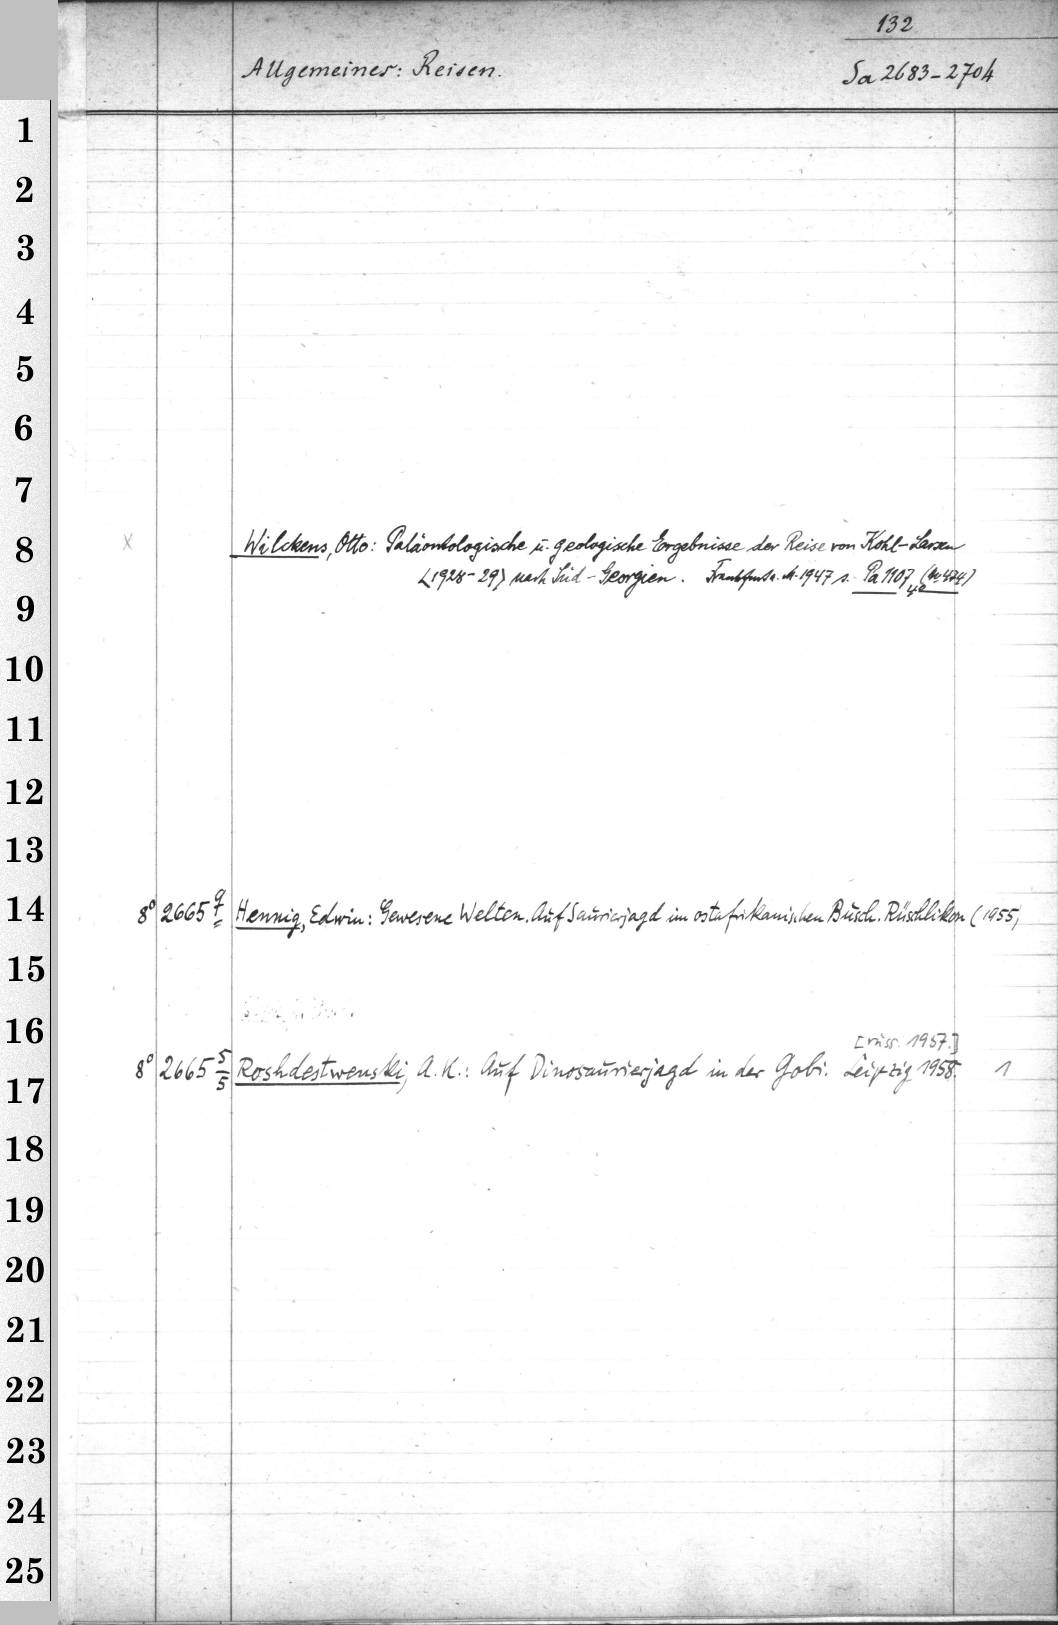 132
Allgemeines: Reisen.
Sa 2683-2704
1
2
3
4
5
6
7
8
x Wilckens, Otto: Paläontologische u. geologische Ergebnisse der Reise von Kohl-Larsen
<1928-29> nach Süd-Georgien. Frankfurt a. M. 1947 s. Pa 1107 4° (Nr. 474)
9
10
11
12
13
14
8° 2665 q Hennig, Edwin: Gewesene Welten. Auf Saurierjagd im ostafrikanischen Busch. Rüschlikon (1955)
15
16
[russ. 1957.]
8° 2665 5/5 Roshdestwenski, A. K.: Auf Dinosaurierjagd in der Gobi. Leipzig 1958. 1
17
18
19
20
21
22
23
24
25